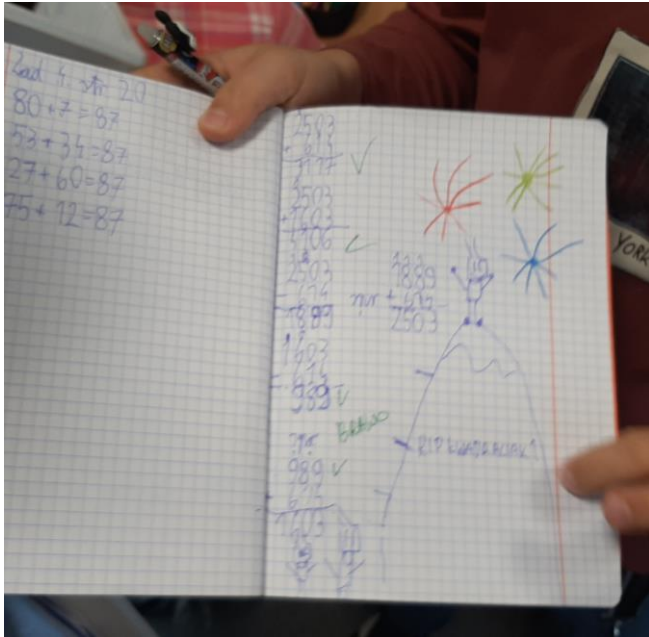 Zad 4. str 20
80+7=87
53+34=87
27+60=87
75+12=87
2503
+ 614
3117
2503
+1603
4106
2503
- 614
1889
spr
1889
+ 614
2503
1603
- 614
989
BRAWO
spr.
989
+ 614
1603
RIP
YORK